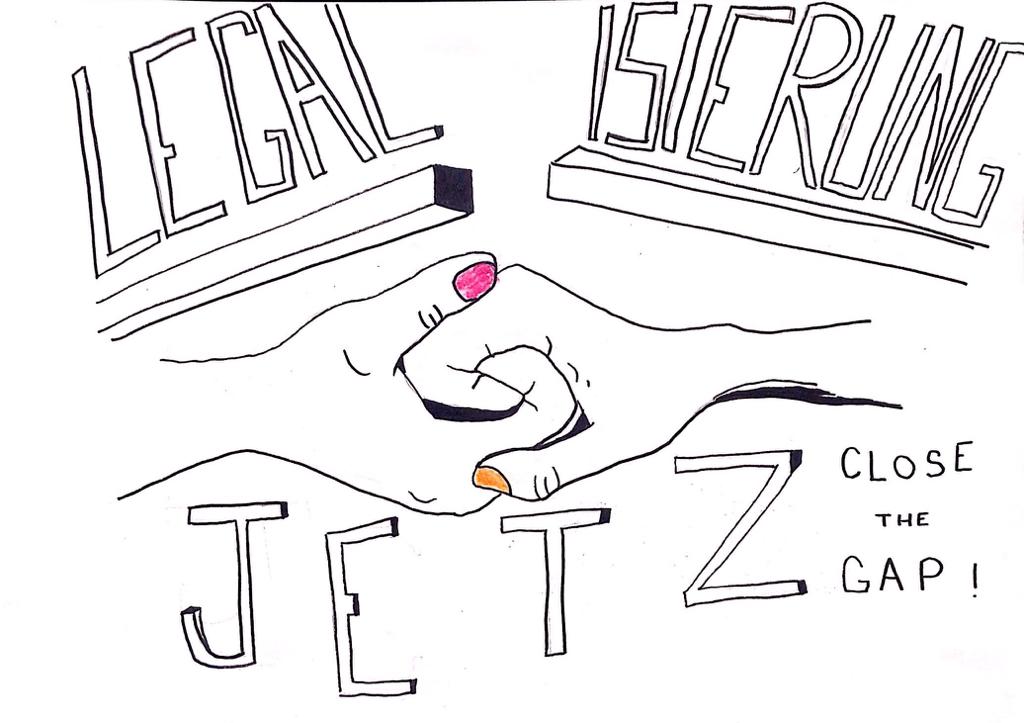 LEGAL ISIERUNG
JETZ
CLOSE
THE
GAP!